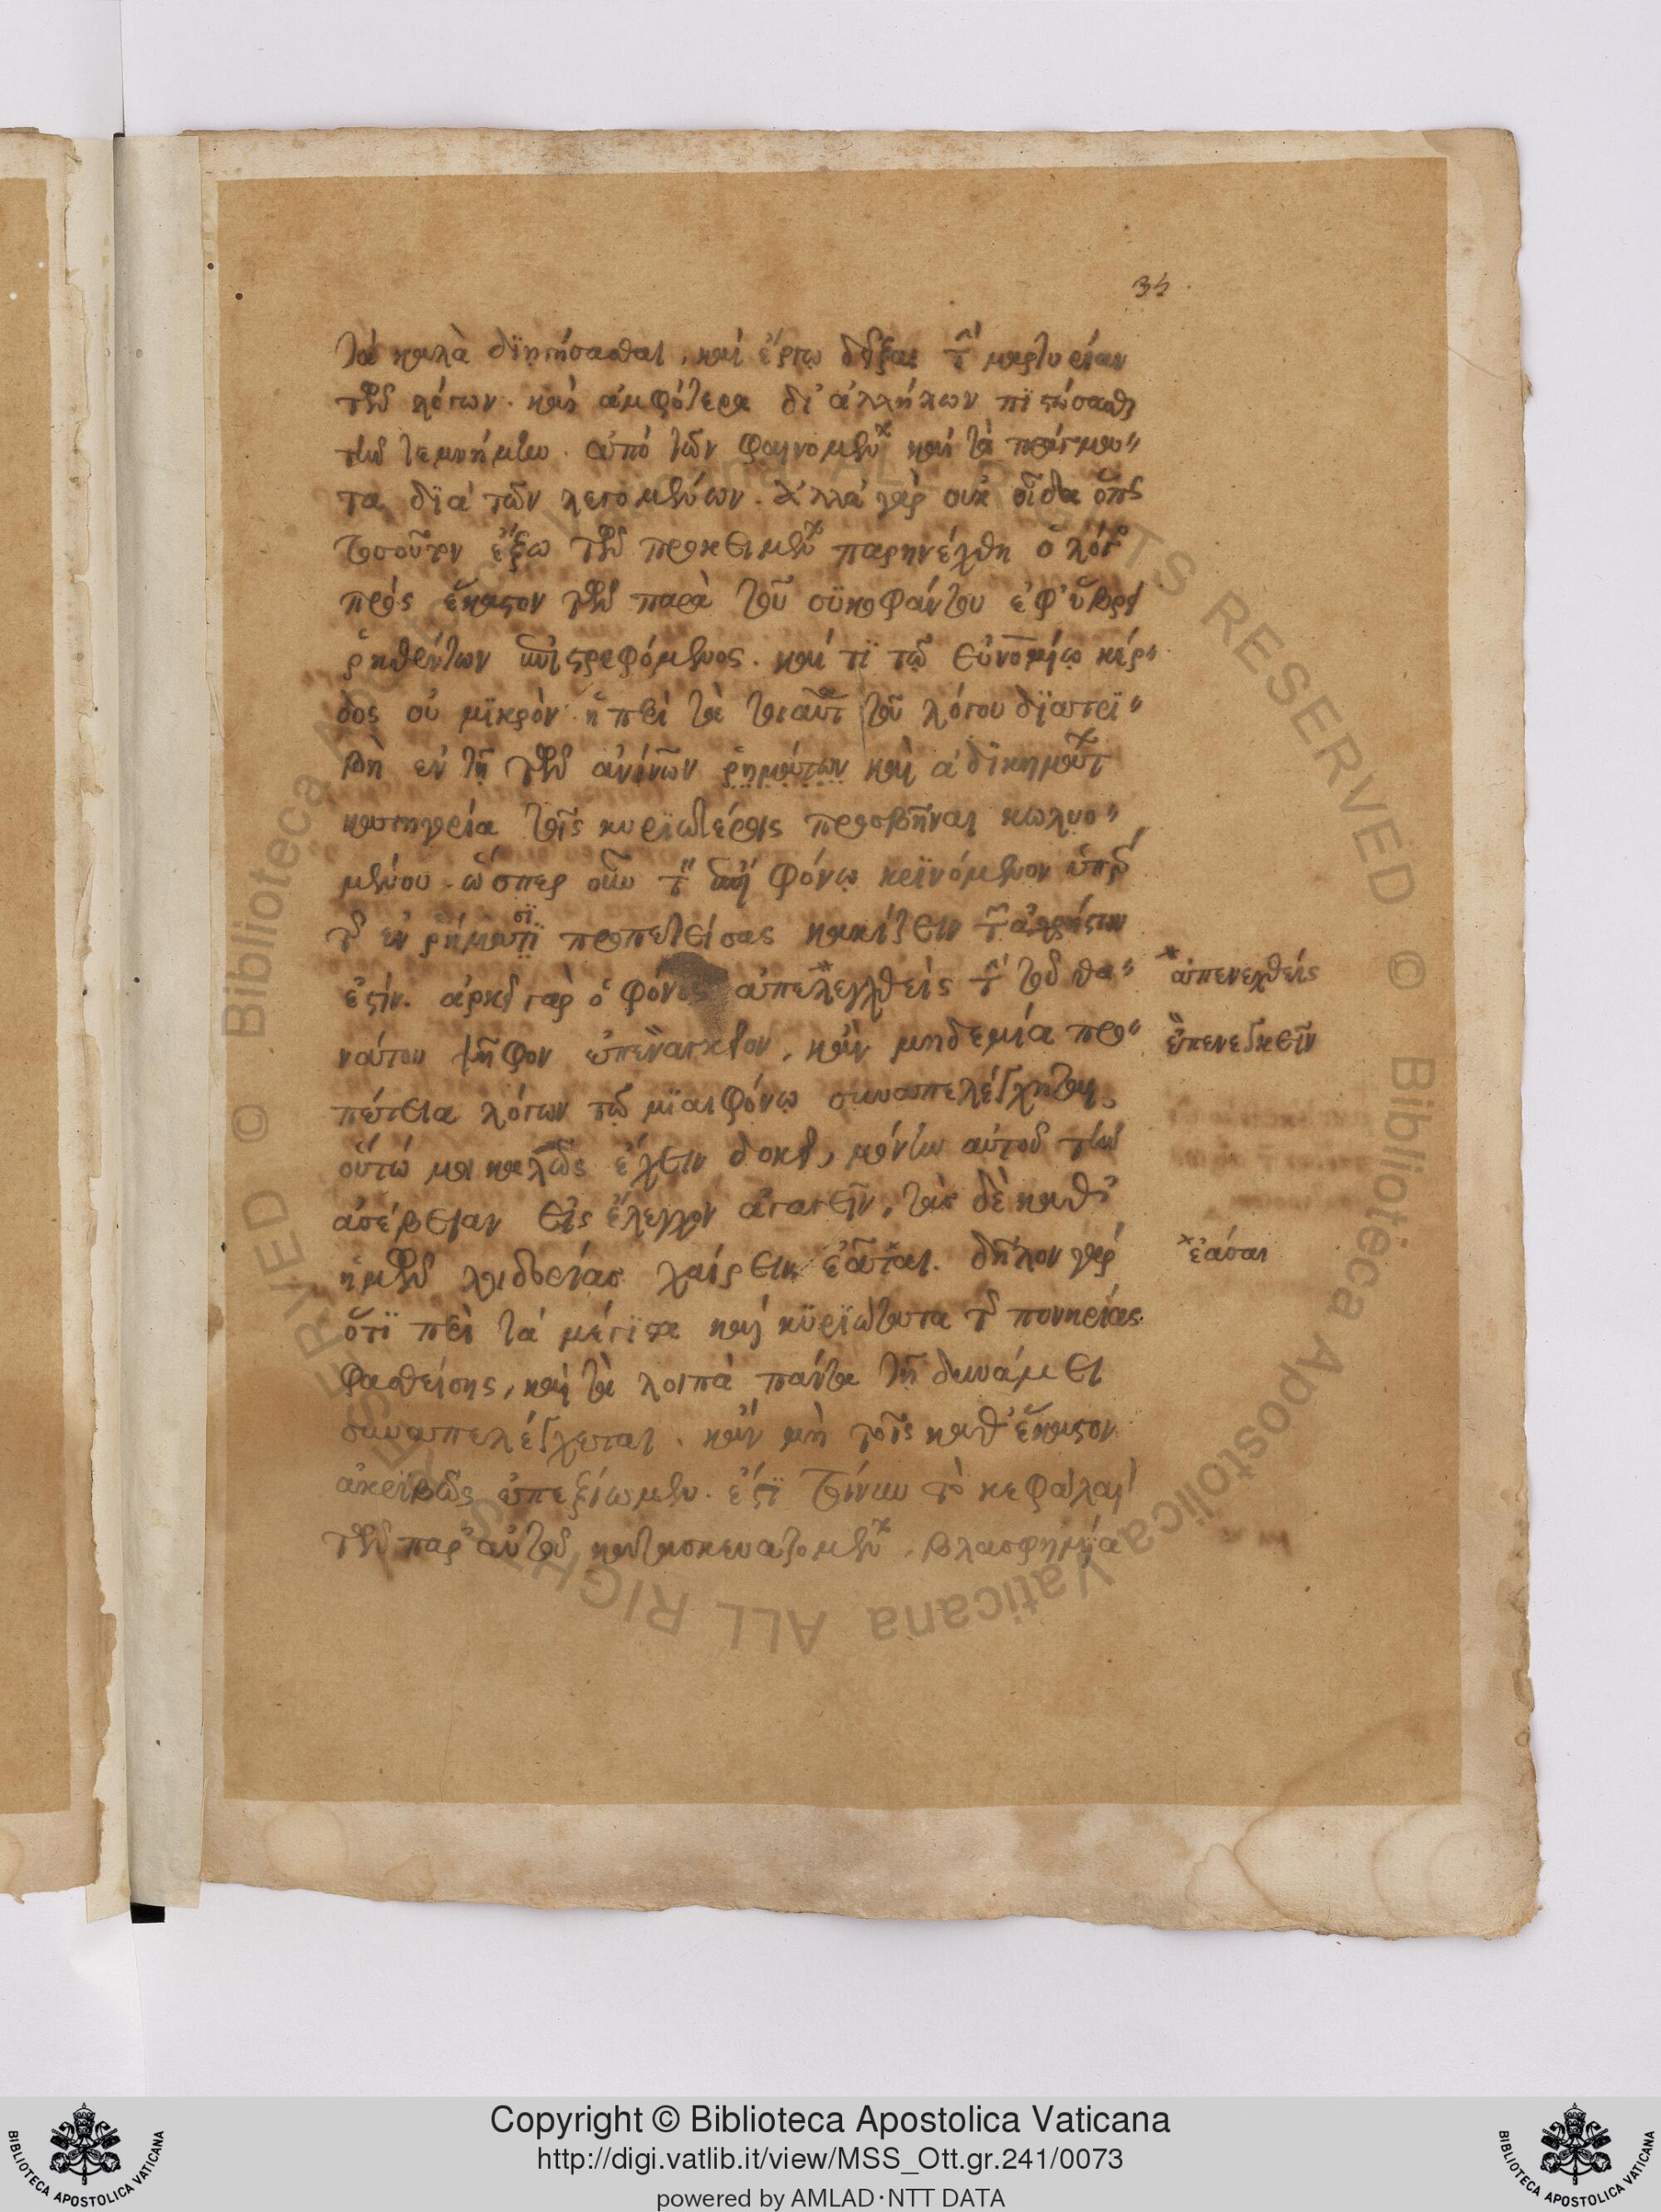 35
τὰ καλὰ διηγήσασθαι, καὶ ἔργω δεῖξαι τὴν μαρτυρίαν
τῶν λόγων. καὶ ἀμφότερα δι' ἀλλήλων πιστώσασθαι
ἀπὸ τῶν φαινομένων καὶ τὰ πράγμα"
τα, διὰ τῶν λεγομένων. Ἀλλὰ γὰρ οὐκ οἶδα ὅπως
τοσοῦτον ἔξω τῶν προκειμένων παρηνέχθη ὁ λόγος
πρὸς ἕκαστον τῶν παρὰ τοῦ συκοφάντου ἐφ' ὕβρει
ῥηθέντων ἐπιστρεφόμενος. καί τι τῷ εὐνομίῳ κέρ"
δος οὐ μικρὸν ἡ περὶ τὰ τοιαῦτα τοῦ λόγου διατρι"
βὴ ἐν τῇ τῶν ῥημάτων καὶ ἀδικημάτων
κατηγορία τοῖς κυριωτέροις προσβῆναι κωλυο"
μένου. ὥσπερ οὖν τὸν ἐπὶ φόνῳ κρινόμενον
τὰς ἐν ῥήματι προπετείας κακίζειν ἄχρηστον
ἐστίν. ἀρκεῖ γὰρ ὁ φόνος ἀπελεγχθεὶς τὴν τοῦ θα"
νάτου ψῆφον ἐπεναγκεῖν, κἂν μηδεμία προ"
πέτεια λόγων τῷ μιαιφόνῳ συναπελέγχηται,
οὕτω μοι καλῶς ἔχειν δοκεῖ, μόνην αὐτοῦ τὴν
ἀσέβειαν εἰς ἔλεγχον ἀγαγεῖν, τὰς δὲ καθ'
ἡμῶν λοιδορίας χαίρειν ἐᾶται. δῆλον γὰρ
ὅτι περὶ τὰ μέγιστα καὶ κυριώτατα τῆς πονηρίας
φαθείσης, καὶ τὰ λοιπὰ πάντα τῇ δυνάμει
συναπελέγχεται. κἂν μὴ τοῖς καθ' ἕκαστον
ἀκριβῶς ἐπεξίωμεν. ἔστι τοίνυν τὸ κεφάλαιον
τῶν παρ' αὐτοῦ κατασκευαζομένων, βλασφημία
ἀπενεχθεὶς
ἐπενεγκεῖν
ἐάσαι
Copyright © Biblioteca Apostolica Vaticana
http://digi.vatlib.it/view/MSS_Ott.gr.241/0073
powered by AMLAD·NTT DATA